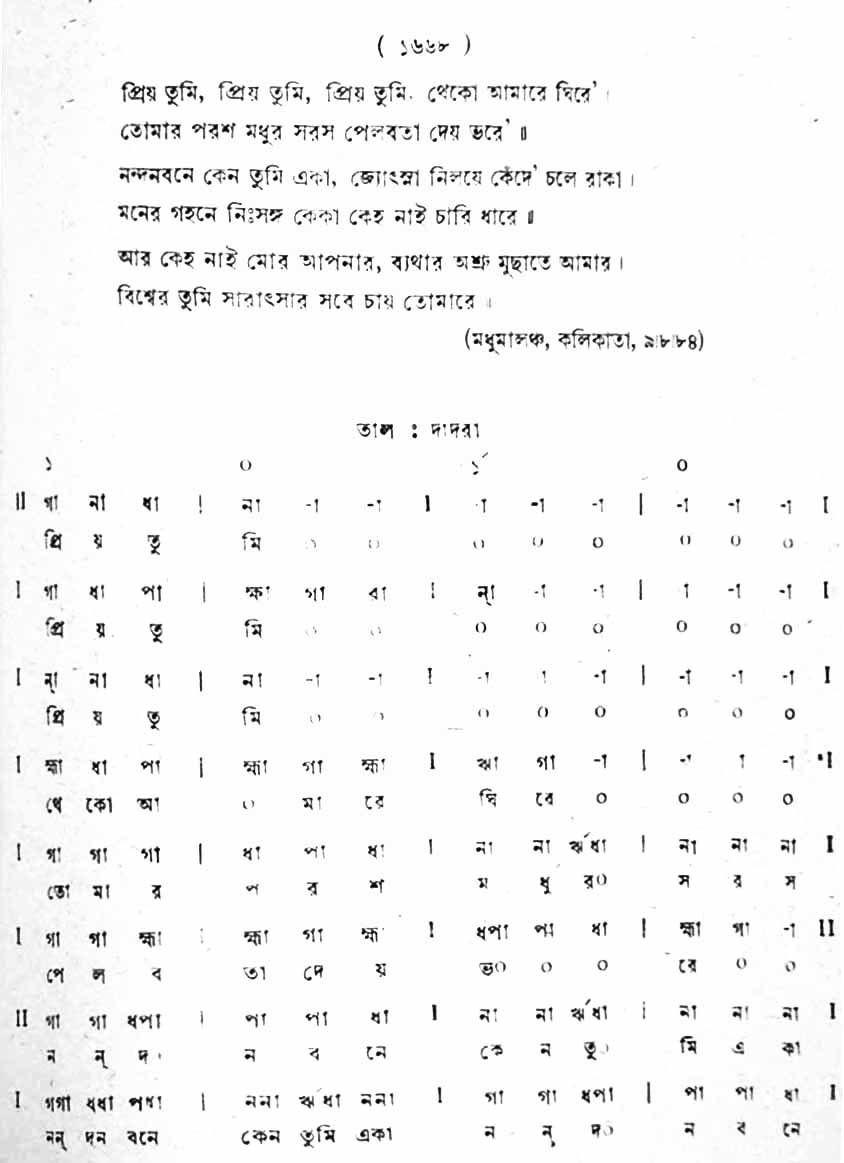 ( ১৬৬৮ )
প্রিয় তুমি, প্রিয় তুমি, প্রিয় তুমি. থেকো আমারে ঘিরে' ।
তোমার পরশ মধুর সরস পেলবতা দেয় ভরে' ॥
নন্দনবনে কেন তুমি একা, জ্যোৎস্না নিলয়ে কেঁদে' চলে রাকা ।
মনের গহনে নিঃসঙ্গ কেকা কেহ নাই চারি ধারে ॥
আর কেহ নাই মোর আপনার, ব্যথার অশ্রু মুছাতে আমার ।
বিশ্বের তুমি সারাৎসার সবে চায় তোমারে ॥
(মধুমালঞ্চ, কলিকাতা, ৯।৮।৮৪)
তাল : দাদরা
১ ০ ১́ ০
II গা না ধা | না -া -া I -া -া -া | -া -া -া I
প্রি য় তু মি ০ ০ ০ ০ ০ ০ ০ ০
I গা ধা পা | হ্মা গা রা I ন্া -া -া | া -া -া I
প্রি য় তু মি ০ ০ ০ ০ ০ ০ ০ ০
I ন্া না ধা | না -া -া I -া া -া | -া -া -া I
প্রি য় তু মি ০ ০ ০ ০ ০ ০ ০ ০
I হ্মা ধা পা | হ্মা গা হ্মা I ঋা গা -া | -া া -া I
থে কো আ ০ মা রে ঘি রে ০ ০ ০ ০
I গা গা গা | ধা পা ধা I না না র্ঋধা | না না না I
তো মা র প র শ ম ধু র০ স র স
I গা গা হ্মা | হ্মা গা হ্ম I ধপা পা ধা | হ্মা গা -া II
পে ল ব তা দে য় ভ০ ০ ০ রে ০ ০
II গা গা ধপা | পা পা ধা I না না র্ঋধা | না না না I
ন ন্ দ০ ন ব নে কে ন তু০ মি এ কা
I গগা ধধা পধা | ননা র্ঋধা ননা I গা গা ধপা | পা পা ধা I
নন্ দন বনে কেন তুমি একা ন ন্ দ০ ন ব নে